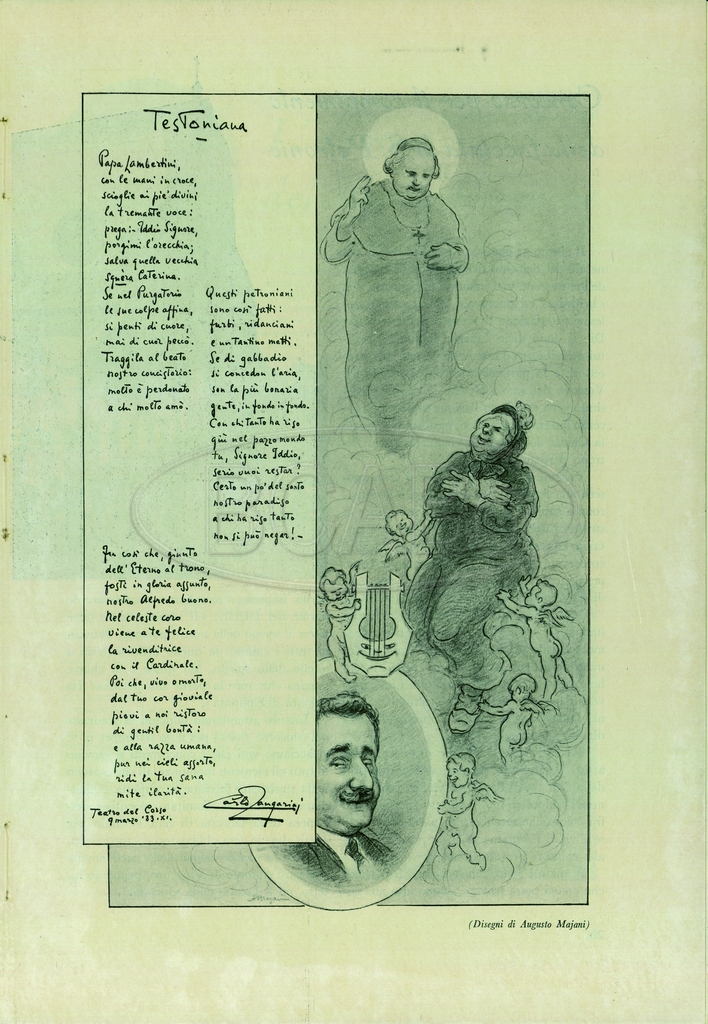 Testoniana
Papa Lambertini,
con le mani in croce,
scioglie ai pie' divini
la tremante voce:
prega:- Iddio Signore,
porgimi l'orecchia;
salva quella vecchia
sgnèra Caterina.
Se nel Purgatorio
le sue colpe affina,
si penti di cuore,
mai di cuor peccò.
Traggila al beato
nostro concistorio:
molto è perdonato
a chi molto amò.
Questi petroniani
sono così fatti:
furbi, ridanciani
e un tantino matti.
Se di gabbadio
si concedon l'aria,
son la più bonaria
gente, in fondo in fondo.
Con chi tanto ha riso
qui nel pazzo mondo
tu, Signore Iddio,
serio vuoi restar?
Certo un po' del santo
nostro paradiso
a chi ha riso tanto
non si può negar! -
Fu così che, giunto
dell'Eterno al trono,
fosti in gloria assunto,
nostro Alfredo buono.
Nel celeste coro
viene a te felice
la rivenditrice
con il Cardinale.
Poi che, vivo o morto,
dal tuo cor gioviale
piovi a noi ristoro
di gentil bontà:
e alla razza umana,
pur nei cieli assorto,
ridi la tua sana
mite ilarità.
Carlo Zangarini
Teatro del Corso
9 marzo '33.XI.
(Disegni di Augusto Majani)